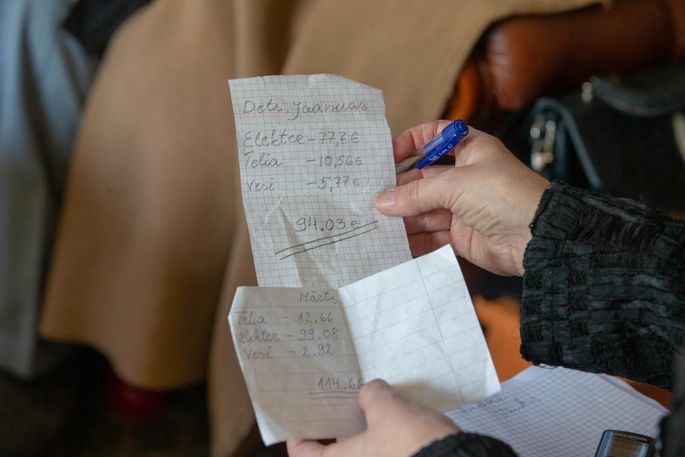 Dets. Jaanuar
Elekter - 77,7€
Telia - 10,56€
Vesi - 5,77€
94.03€
Märts
Telia - 12.66
Elekter - 99.08
Vesi - 2.92
114.66